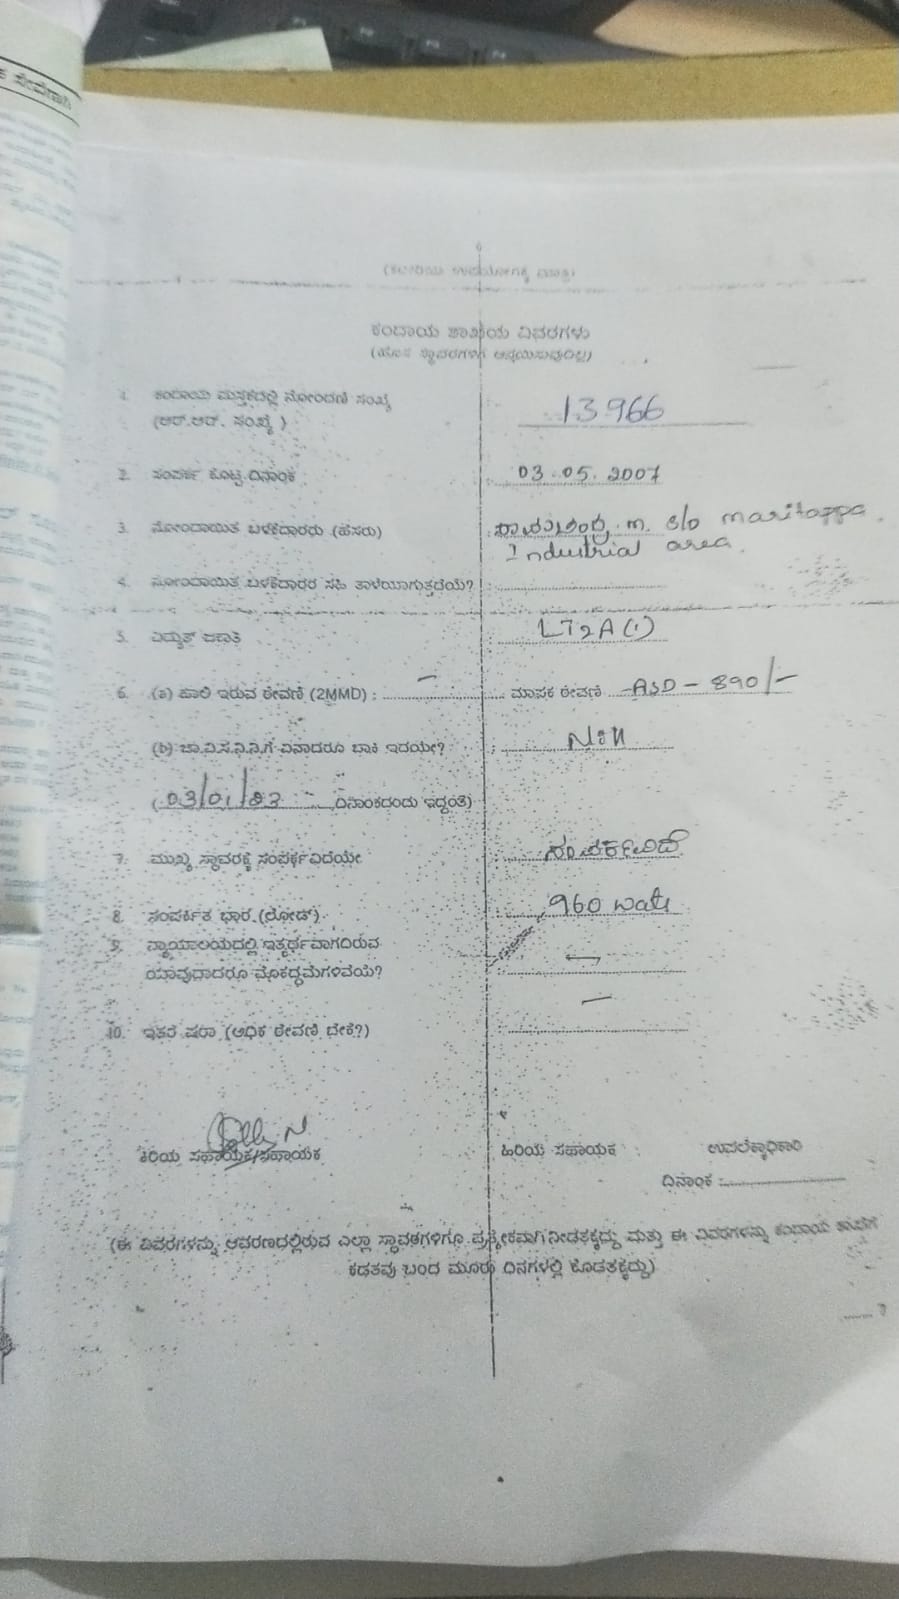 ಕ ಸೇವೆಗಾಗಿ
6
(ಕಛೇರಿಯ ಉಪಯೋಗಕ್ಕೆ ಮಾತ್ರ)
ಕಂದಾಯ ಶಾಖೆಯ ವಿವರಗಳು
(ಹೊಸ ಸ್ಥಾವರಗಳಿಗೆ ಅನ್ವಯಿಸುವುದಿಲ್ಲ)
1. ಕಂದಾಯ ಪುಸ್ತಕದಲ್ಲಿ ನೋಂದಣಿ ಸಂಖ್ಯೆ
(ಆರ್.ಆರ್. ಸಂಖ್ಯೆ ) : 13966
2. ಸಂಪರ್ಕ ಕೊಟ್ಟ ದಿನಾಂಕ : 03.05.2007
3. ನೋಂದಾಯಿತ ಬಳಕೆದಾರರು (ಹೆಸರು) : m. s/o maritappa
Industrial area.
4. ನೋಂದಾಯಿತ ಬಳಕೆದಾರರ ಸಹಿ ತಾಳೆಯಾಗುತ್ತದೆಯೆ? :
5. ವಿದ್ಯುತ್ ಜಕಾತಿ : LT2A(1)
6. (a) ಹಾಲಿ ಇರುವ ಠೇವಣಿ (2MMD) : — ಮಾಪಕ ಠೇವಣಿ ASD - 890/-
(b) ಚಾ.ವಿ.ಸ.ನಿ.ನಿ.ಗೆ ಏನಾದರೂ ಬಾಕಿ ಇದೆಯೇ? : Nill
( 03/01/23 ದಿನಾಂಕದಂದು ಇದ್ದಂತೆ)
7. ಮುಖ್ಯ ಸ್ಥಾವರಕ್ಕೆ ಸಂಪರ್ಕವಿದೆಯೇ : ಸಂಪರ್ಕವಿದೆ
8. ಸಂಪರ್ಕಿತ ಭಾರ (ಲೋಡ್) : 960 watts
9. ನ್ಯಾಯಾಲಯದಲ್ಲಿ ಇತ್ಯರ್ಥವಾಗದಿರುವ
ಯಾವುದಾದರೂ ಮೊಕದ್ಧಮೆಗಳಿವೆಯೆ? : —
10. ಇತರೆ ಷರಾ (ಅಧಿಕ ಠೇವಣಿ ಬೇಕೆ?) : —
ಕಿರಿಯ ಸಹಾಯಕ/ಸಹಾಯಕ ಹಿರಿಯ ಸಹಾಯಕ ಉಪಲೆಕ್ಕಾಧಿಕಾರಿ
ದಿನಾಂಕ :
(ಈ ವಿವರಗಳನ್ನು ಆವರಣದಲ್ಲಿರುವ ಎಲ್ಲಾ ಸ್ಥಾವರಗಳಿಗೂ ಪ್ರತ್ಯೇಕವಾಗಿ ನೀಡತಕ್ಕದ್ದು ಮತ್ತು ಈ ವಿವರಗಳನ್ನು ಕಂದಾಯ ಶಾಖೆಗೆ
ಕಡತವು ಬಂದ ಮೂರು ದಿನಗಳಲ್ಲಿ ಕೊಡತಕ್ಕದ್ದು)
...... 7